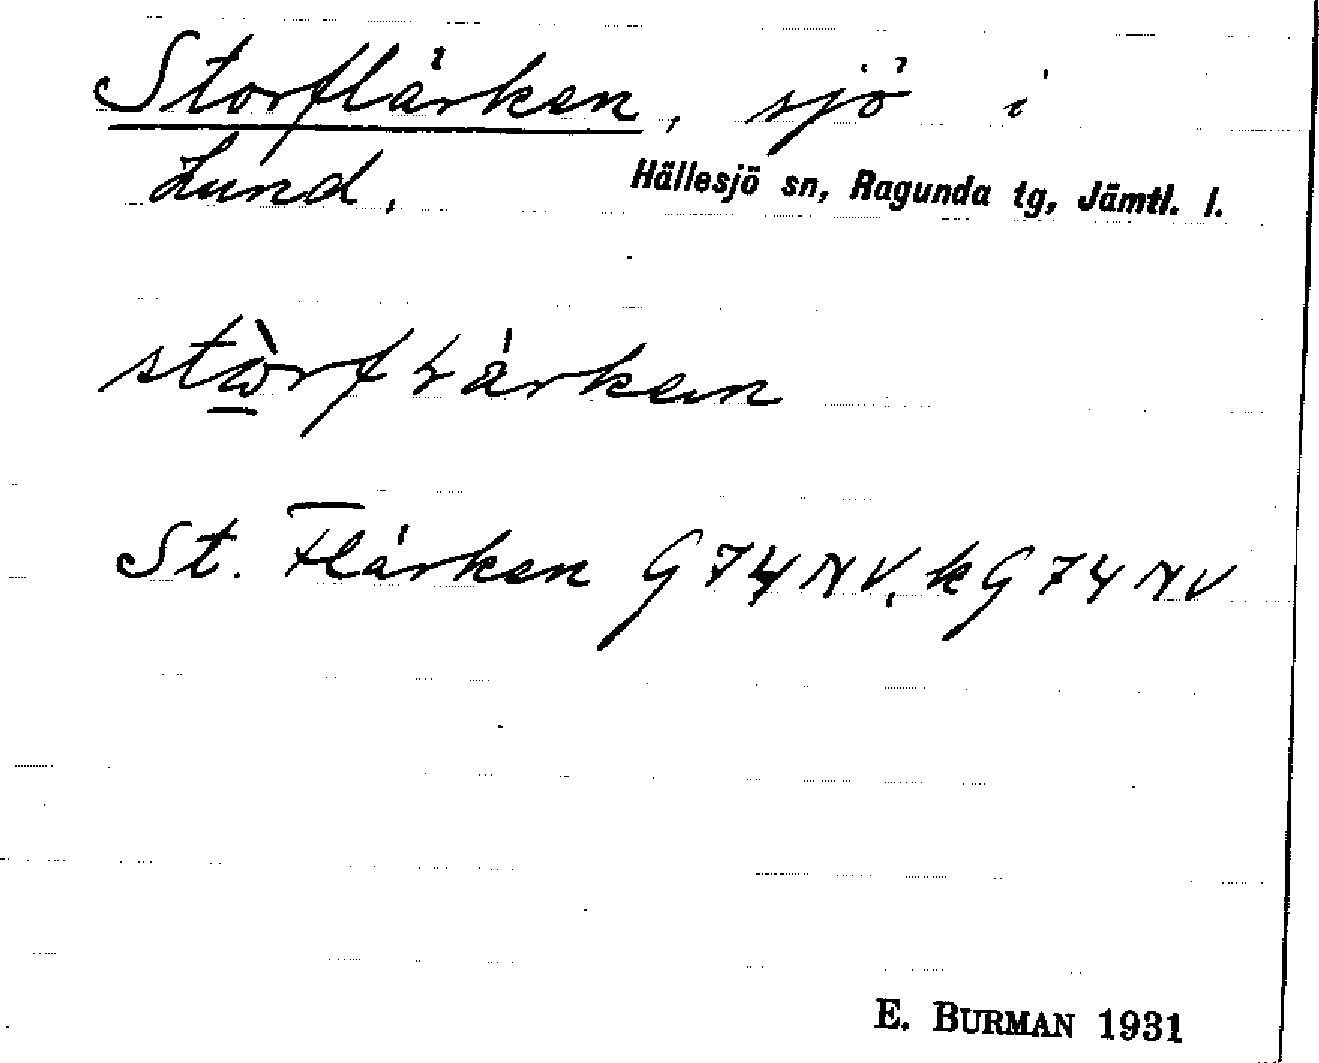 Storflärken, sjö i
Lund. Hällesjö sn, Ragunda tg, Jämtl. l.
stὼrfɽárken
St. Flärken G 74 NV. k G 74 NV
E. BURMAN 1931